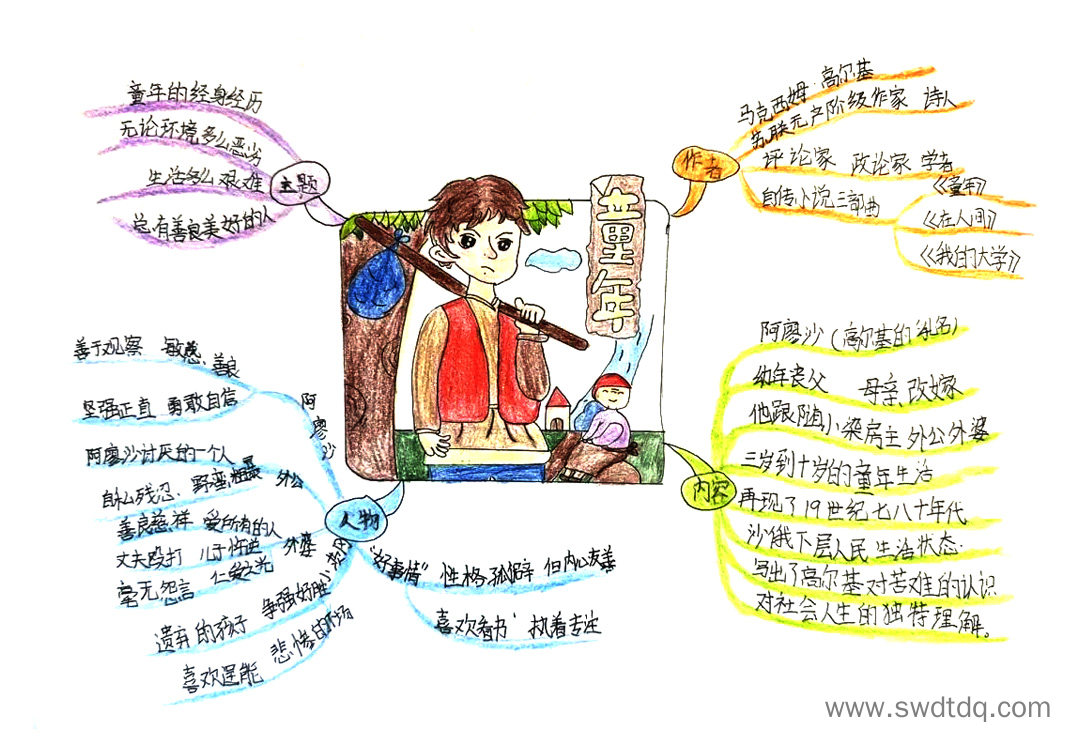 童年
主题
童年的经身经历
无论环境多么恶劣
生活多么艰难
总有善良美好的人
作者
马克西姆·高尔基
苏联无产阶级作家 诗人
评论家 政论家 学者
自传小说三部曲
《童年》
《在人间》
《我的大学》
内容
阿廖沙(高尔基的乳名)
幼年丧父 母亲改嫁
他跟随小染房主外公外婆
三岁到十岁的童年生活
再现了19世纪七八十年代
沙俄下层人民生活状态.
写出了高尔基对苦难的认识
对社会人生的独特理解。
人物
阿廖沙
善于观察 敏感、善良
坚强正直 勇敢自信
外公
阿廖沙讨厌的一个人
自私残忍、野蛮粗暴
外婆
善良慈祥 爱所有的人
丈夫殴打 儿子忤逆
毫无怨言 仁爱之光
小茨冈
遗弃的孩子 争强好胜
喜欢逞能 悲惨的下场
"好事情" 性格孤僻 但内心友善
喜欢看书 执着专注
www.swdtdq.com